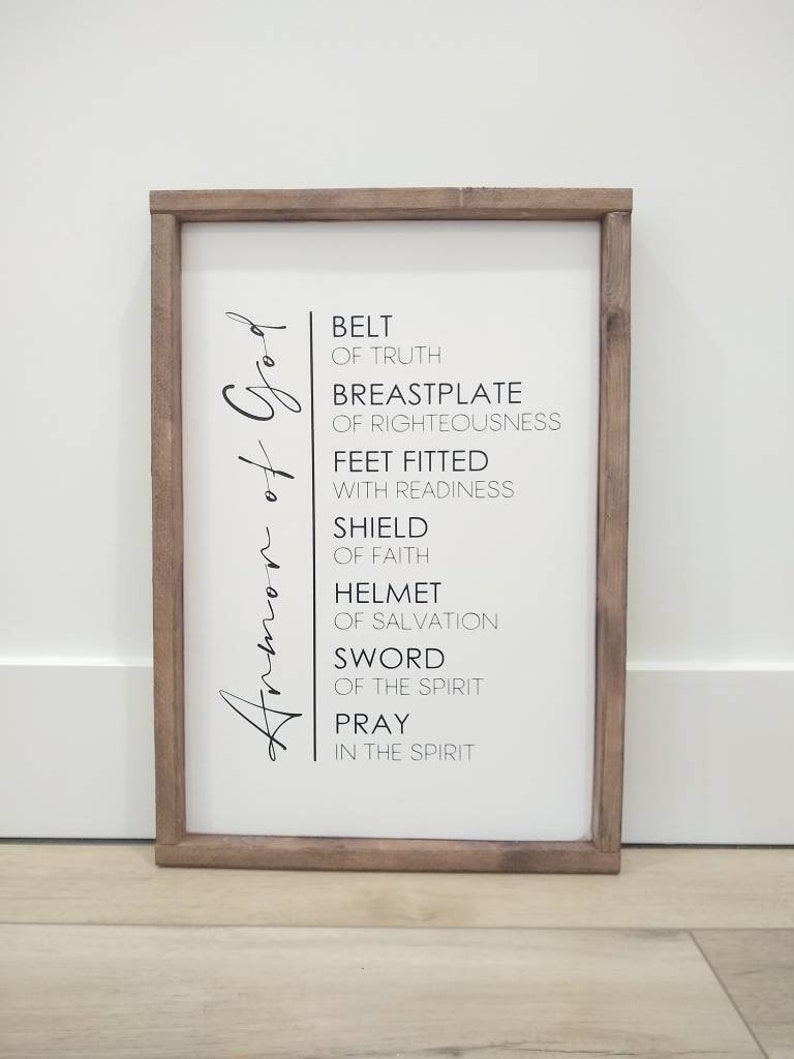 Armor of God
BELT
OF TRUTH
BREASTPLATE
OF RIGHTEOUSNESS
FEET FITTED
WITH READINESS
SHIELD
OF FAITH
HELMET
OF SALVATION
SWORD
OF THE SPIRIT
PRAY
IN THE SPIRIT